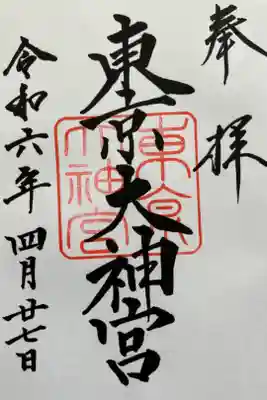 奉拝
東京大神宮
東京大神宮
令和六年 四月廿七日